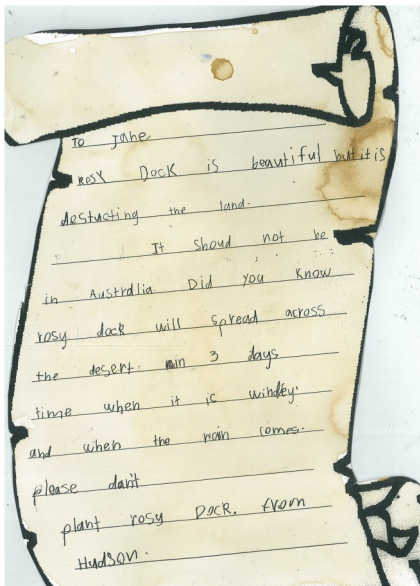 To Jane
rosy Dock is beautiful but it is
destucting the land.
It shoud not be
in Australia Did you know
rosy dock will spread across
the desert in 3 days
time when it is windey
and when the rain comes.
please don't
plant rosy Dock. from
Hudson.